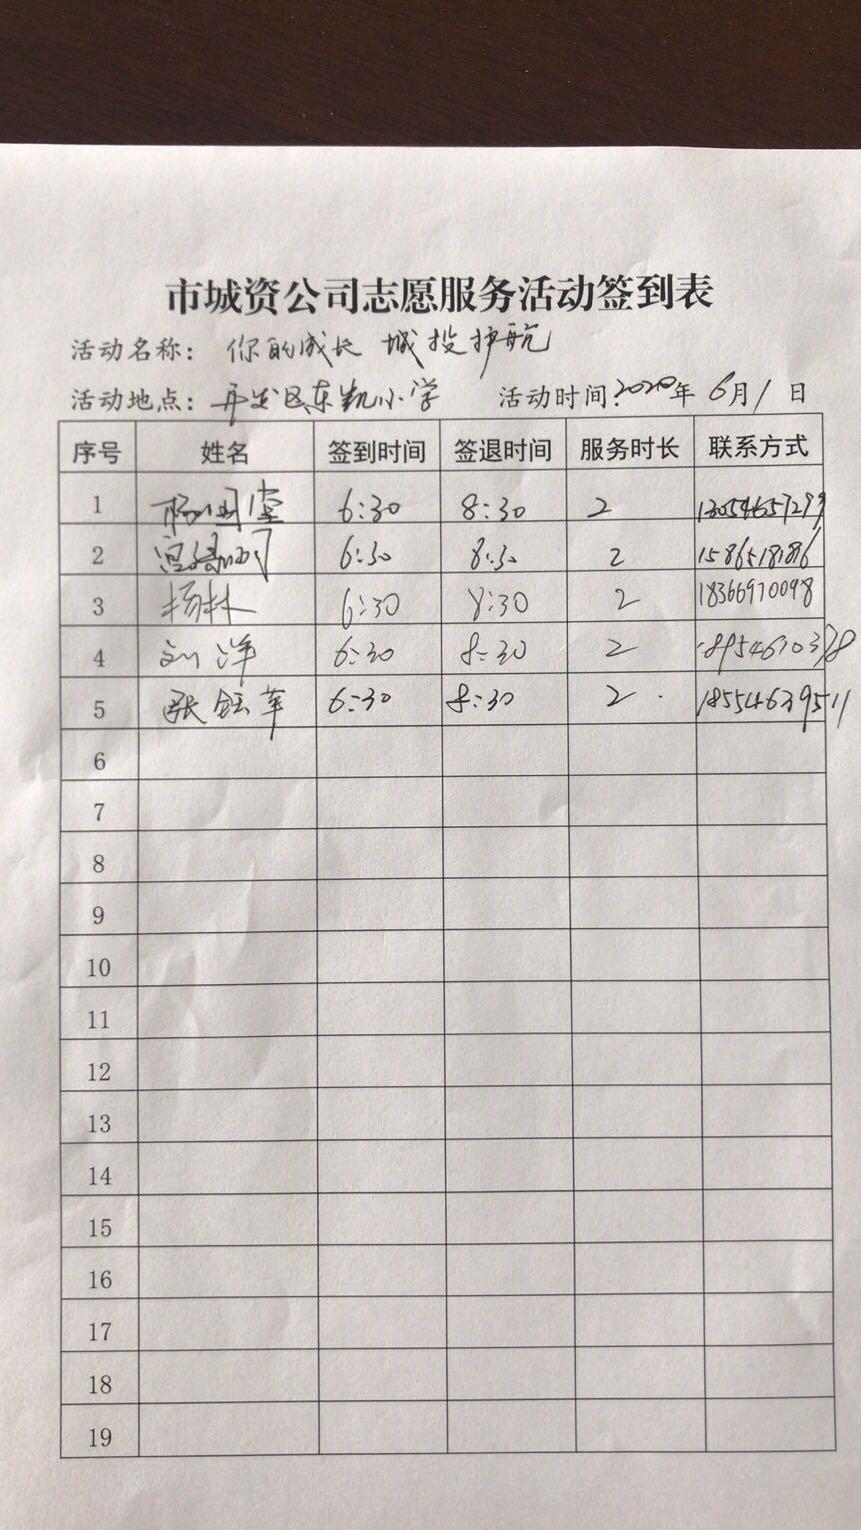 市城资公司志愿服务活动签到表
活动名称：你的成长 城投护航
活动地点：开发区东凯小学 活动时间：2020年6月1日
序号 姓名 签到时间 签退时间 服务时长 联系方式
1 杨国堂 6:30 8:30 2 13054657299
2 宫 6:30 8:30 2 15865181816
3 杨林 6:30 8:30 2 18366970098
4 刘洋 6:30 8:30 2 18954670378
5 张钰苹 6:30 8:30 2 18554639511
6
7
8
9
10
11
12
13
14
15
16
17
18
19